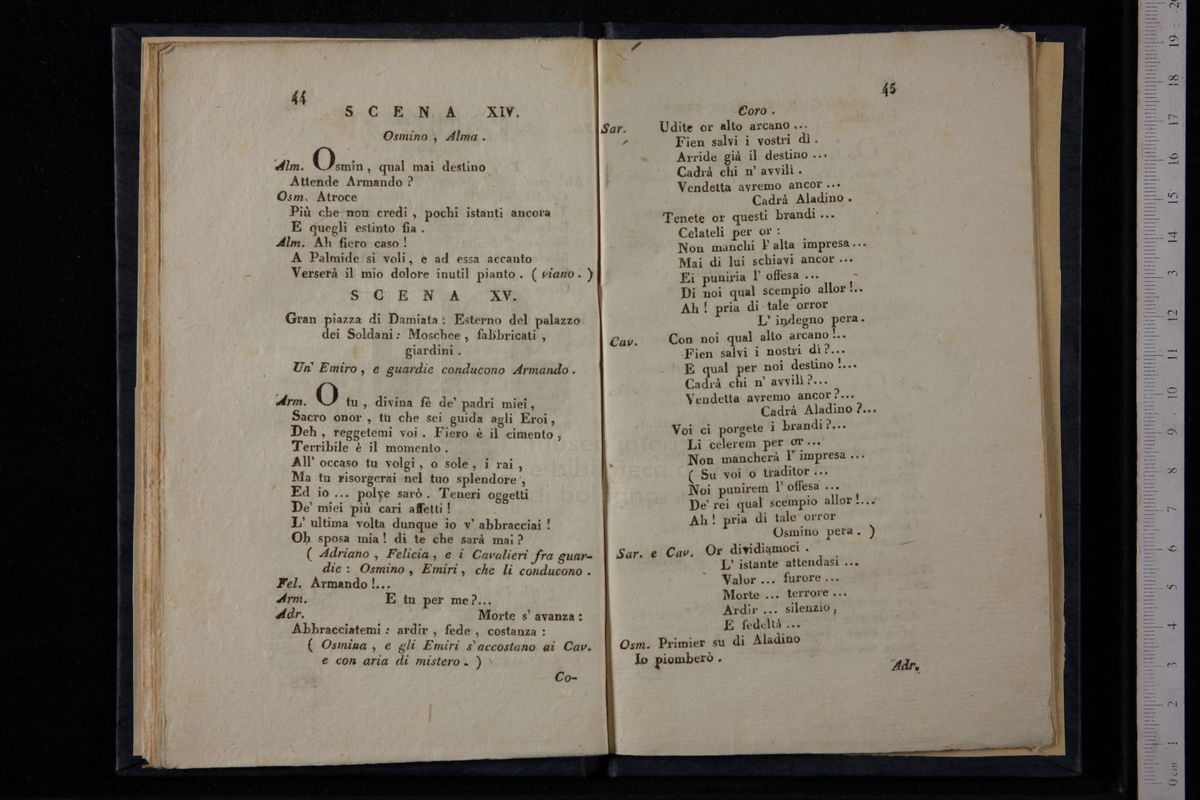 44
SCENA XIV.
Osmino , Alma .
Alm. Osmin , qual mai destino
Attende Armando ?
Osm. Atroce
Più che non credi , pochi istanti ancora
E quegli estinto fia .
Alm. Ah fiero caso !
A Palmide si voli , e ad essa accanto
Verserà il mio dolore inutil pianto . ( viano . )
SCENA XV.
Gran piazza di Damiata : Esterno del palazzo
dei Soldani : Moschee , fabbricati ,
giardini .
Un' Emiro , e guardie conducono Armando .
Arm. O tu , divina fè de' padri miei ,
Sacro onor , tu che sei guida agli Eroi ,
Deh , reggetemi voi . Fiero è il cimento ,
Terribile è il momento .
All' occaso tu volgi , o sole , i rai ,
Ma tu risorgerai nel tuo splendore ,
Ed io ... polve sarò . Teneri oggetti
De' miei più cari affetti !
L' ultima volta dunque io v' abbracciai !
Oh sposa mia ! di te che sarà mai ?
( Adriano , Felicia , e i Cavalieri fra guar-
die : Osmino , Emiri , che li conducono .
Fel. Armando !...
Arm. E tu per me ?...
Adr. Morte s' avanza :
Abbracciatemi : ardir , fede , costanza :
( Osmina , e gli Emiri s' accostano ai Cav.
e con aria di mistero . )
Co-
45
Coro .
Sar. Udite or alto arcano ...
Fien salvi i vostri dì .
Arride già il destino ...
Cadrà chi n' avvilì .
Vendetta avremo ancor ...
Cadrà Aladino .
Tenete or questi brandi ...
Celateli per or :
Non manchi l' alta impresa ...
Mai di lui schiavi ancor ...
Ei puniria l' offesa ...
Di noi qual scempio allor !..
Ah ! pria di tale orror
L' indegno pera .
Cav. Con noi qual alto arcano !..
Fien salvi i nostri dì ?...
E qual per noi destino !...
Cadrà chi n' avvilì ?...
Vendetta avremo ancor ?...
Cadrà Aladino ?...
Voi ci porgete i brandi ?...
Li celerem per or ...
Non mancherà l' impresa ...
( Su voi o traditor ...
Noi punirem l' offesa ...
De' rei qual scempio allor !...
Ah ! pria di tale orror
Osmino pera . )
Sar. e Cav. Or dividiamoci .
L' istante attendasi ...
Valor ... furore ...
Morte ... terrore ...
Ardir ... silenzio ,
E fedeltà ...
Osm. Primier su di Aladino
Io piomberò .
Adr.